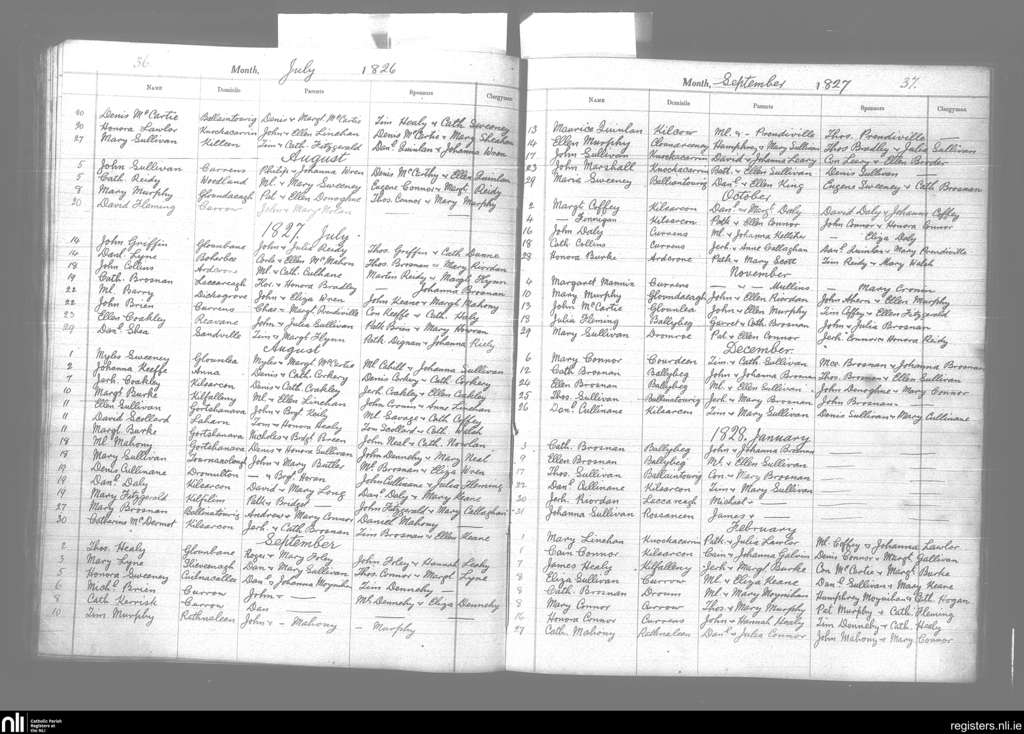 36
Month, July 1826
Name Domicile Parents Sponsors Clergyman
20 Denis McCartie Bellaintourig Denis & Margt McCartie Tim Healy & Cath Sweeney
20 Honora Lawlor Knockacurrin John & Ellen Linehan Denis McCartie & Mary Sheahan
27 Mary Sullivan Killeen Tim & Cath Fitzgerald Danl Quinlan & Johanna Wren
August
5 John Sullivan Currens Philip & Johanna Wren Denis McCarthy & Ellen Quinlan
5 Cath Reidy Woodland Ml. & Mary Sweeney Eugene Connor & Margt Reidy
8 Mary Murphy Gloundaeagh Pat & Ellen Donoghue Thos. Connor & Mary Murphy
20 David Fleming Currow John & Mary Nolan — —
1827 July
14 John Griffin Glounbane John & Julia Reidy Thos. Griffin & Cath Dunne
14 Danl Lyne Boherbee Corls & Ellen McMahon Thos. Brosnan & Mary Riordan
18 John Collins Ardcrone Ml & Cath Culhane Martin Reidy & Margt Flynn
19 Cath. Brosnan Laccareagh Hor. & Honora Bradley — Johanna Brosnan
22 Ml. Barry Dicksgrove John & Eliza Wren John Keane & Margt Mahony
22 John Brien Currens Chas & Margt Prendiville Con Keeffe & Cath. Healy
23 Ellen Coakley Reavane John & Julia Sullivan Path Brien & Mary Horan
29 Danl Shea Sandville Tim & Margt Flynn Path Dignan & Johanna Riely
August
1 Myles Sweeney Glounlea Myles & Margt McCartie Ml. Cahill & Johanna Sullivan
2 Johanna Keeffe Anna Denis & Cath. Corkery Denis Corkery & Cath. Corkery
7 Jerh. Coakley Kilsarcon Denis & Cath Coakley Jerh. Coakley & Ellen Coakley
10 Margt Burke Kilfalleny Ml & Ellen Linehan John Cronin & Anne Linehan
11 Ellen Sullivan Gortshanava John & Bgt Keily Ml Savage & Cath Coffey
11 David Scollard Laharn Tom & Honora Healy Tom Scollard & Cath. Walsh
11 Margt Burke Gortshanava Nicholas & Bidgt Breen John Neal & Cath. Nowlan
18 Ml Mahony Gortshanava Denis & Honora Sullivan John Dennehy & Mary Neal
18 Mary Sullivan John & Mary Butler Ml. Brosnan & Eliza Wren
19 Denis Cullinane Dromulton — & Bgt. Horan John Culloane & Julia Fleming
19 Danl Daly Kilsarcon David & Mary Long Danl Daly & Mary Keane
19 Mary Fitzgerald Kilfilim Path & Bridget — John Fitzgerald & Mary Callaghan
27 Mary Brosnan Bellnintourig Andrew & Mary Connor Daniel Mahony —
30 Catharine McDermot Kilsarcon Jerh. & Cath Brosnan Tim Brosnan & Ellen Keane
September
2 Thos. Healy Glounbane Roger & Mary Foly John Foley & Hannah Leahy
3 Mary Lyne Shevenagh Dan & Mary Sullivan Thos. Connor & Margt Lyne
5 Honora Sweeney Cutnacutten Danl & Johanna Moynihan Tim Dennehy —
6 Michl Brien Currow John & — — —
8 Cath Kerrisk Currow Dan — Ml. Dennehy & Eliza Dennehy
10 Tim Murphy Rathnaleen John & — Mahony — Murphy
Month, September 1827 37.
Name Domicile Parents Sponsors Clergyman
13 Maurice Quinlan Kilcow Ml. & — Prendiville Thos. Prendiville —
14 Ellen Murphy Clounareeney Humphrey & Mary Sullivan Thos Bradley & Julia Sullivan
17 John Sullivan Knockacarrin David & Johanna Leary Con Leary & Ellen Border
23 John Marshall Knockacurrin Patt. & Ellen Sullivan Denis Sullivan —
29 Maria Sweeney Bellantourig Danl & Ellen King Eugene Sweeney & Cath Brosnan
October
2 Margt Coffey Kilsarcon Danl & Margt Daly David Daly & Johanna Coffey
4 — Finnigan Kilsarcon Path & Ellen Connor John Connor & Honora Connor
16 John Daly Currans Ml & Johanna Kelliher — Eliza Daly
18 Cath Collins Currens Jerh. & Anne Callaghan Danl Quinlan & Mary Prendiville
28 Honora Burke Ardcrone Path & Mary Scott Tim Reidy & Mary Walsh
November
4 Margaret Mannix Currens — " — Mullins — Mary Cronin
10 Mary Murphy Gloundaeagh John & Ellen Riordan John Ahern & Ellen Murphy
13 John McCartie Glounlea John & Ellen Murphy Tim Coffey & Ellen Fitzgerald
13 Julia Fleming Ballybeg Garret & Cath Brosnan John & Julia Brosnan
29 Mary Sullivan Dromroe Pat & Ellen Connor Jerh. Connor & Honora Reidy
December
6 Mary Connor Courdeen Tim & Cath Sullivan Mce. Brosnan & Johanna Brosnan
12 Cath Brosnan Ballybeg John & Johanna Brosnan Thos. Brosnan & Ellen Sullivan
24 Ellen Brosnan Ballybeg Ml. & Ellen Sullivan John Donoghue & Mary Connor
25 Thos. Sullivan Bellnintourig Jerh. & Mary Brosnan John Brosnan —
26 Danl Cullinane Kilsarcon Tim & Mary Sullivan Denis Sullivan & Mary Cullinane
1828. January
3 Cath. Brosnan Ballybeg John & Johanna Brosnan — —
9 Ellen Brosnan Ballybeg Ml. & Ellen Sullivan — —
17 Thos. Sullivan Bellaintourig Con. & Mary Brosnan — —
22 Danl Cullinane Kilsarcon Tim & Mary Sullivan — —
30 Jerh. Riordan Laccareagh Michael & — — —
31 Johanna Sullivan Rossancen James & — — —
February
1 Mary Linehan Knockacurrin Path & Julia Lawlor Ml. Coffey & Johanna Lawlor
1 Cain Connor Kilsarcon Cain & Johanna Galvin Denis Connor & Margt Sullivan
7 James Healy Kilfalleny Jerh & Margt Burke Con McCartie & Margt Burke
8 Eliza Sullivan Currow Ml & Eliza Keane Danl Sullivan & Mary Keane
8 Cath. Brosnan Droum Ml & Mary Moynihan Humphrey Moynihan & Cath Hogan
8 Mary Connor Currow Thos. & Mary Murphy Pat Murphy & Cath. Fleming
16 Honora Connor Currens John & Hannah Healy Tim Dennehy & Cath. Healy
27 Cath. Mahony Rathnaleen Danl & Julia Connor John Mahony & Mary Connor
nli Catholic Parish Registers at the NLI
registers.nli.ie